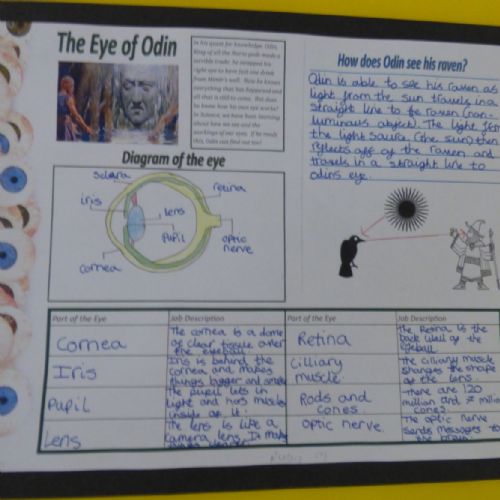 The Eye of Odin
In his quest for knowledge, Odin,
King of all the Norse gods made a
terrible trade: he swapped his
right eye to have just one drink
from Mimir's well. Now he knows
everything that has happened and
all that is still to come. But does
he know how his own eye works?
In Science, we have been learning
about how we see and the
workings of our eyes. If he reads
this, Odin can find out too!
How does Odin see his raven?
Odin is able to see his raven as
light from the sun travels in a
straight line to the raven (non-
luminous object). The light from
the light source (the sun) then
reflects off of the raven and
travels in a straight line to
odins eye.
Diagram of the eye
sclera
retina
iris
lens
Pupil
optic
nerve
cornea
Part of the Eye
Job Description
Part of the Eye
Job Description
Cornea
The cornea is a dome
of clear tissue over
the eyeball
Retina
The Retina is the
back wall of the
eyeball
Iris
Iris is behind the
cornea and makes
things bigger and
Cilliary
muscle
The cilliary muscle
changes the shape
of the lens
Pupil
The pupil lets in
light and has muscles
inside of it.
Rods and
cones.
There are 120
million and 7 million
cones.
Lens
The lens is like a
camera lens. It
Optic nerve.
The optic nerve
sends messages to
the brain.